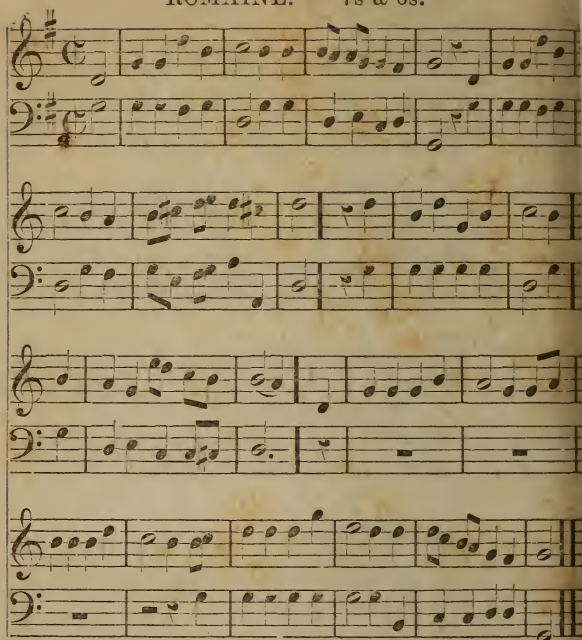 ROMAINE. 7s & 6s.